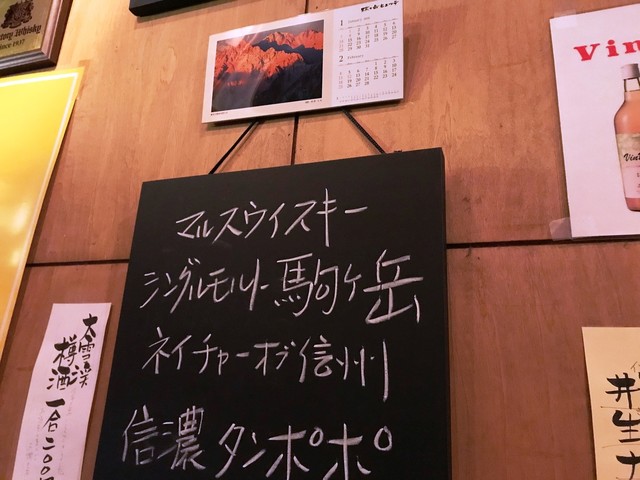 tory Whisky
Since 1937
1
2
Vin
マルスウイスキー
シングルモルト駒ケ岳
ネイチャーオブ信州
信濃タンポポ
大雪渓
樽酒
一合二〇〇
井
生